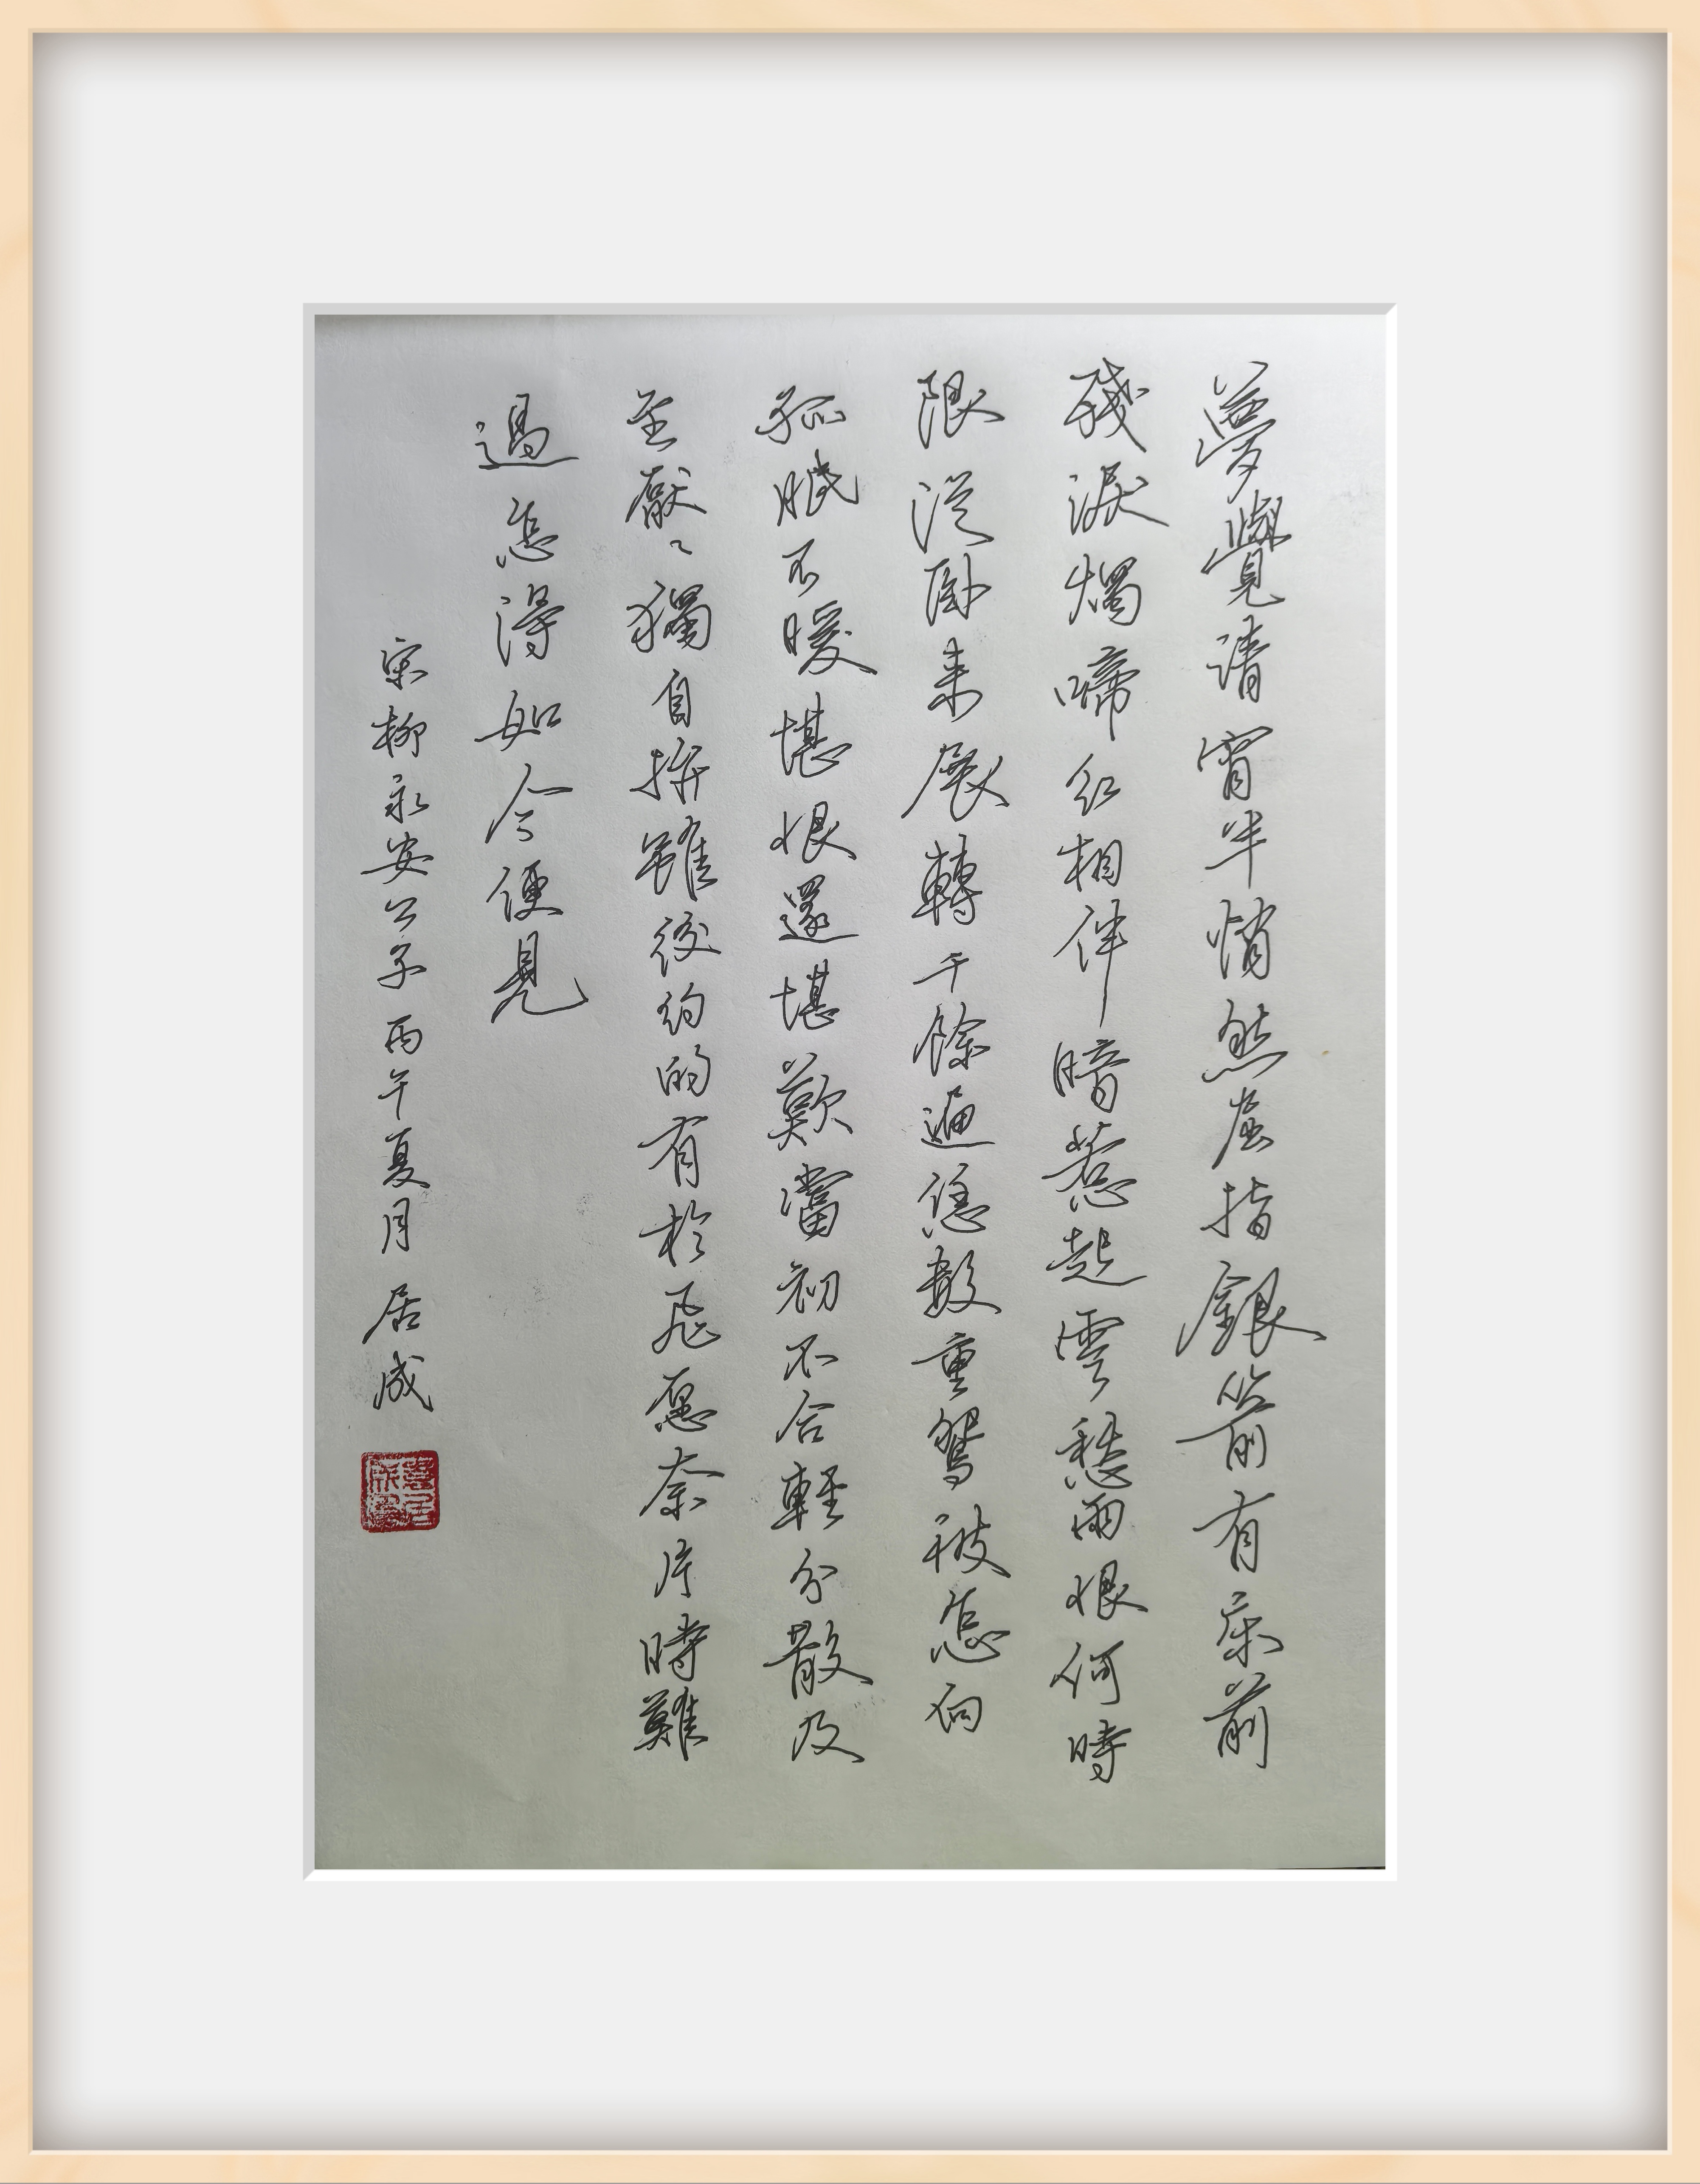 夢覺清宵半悄然屈指銀箭有床前
殘淚燭啼紅相伴暗惹起雲愁雨恨何時
限從卧来展轉千餘遍恁數重鴛被怎向
孤眠不暖堪恨還堪歎當初不合輕分散及
至厭〻獨自拚雖後約的有於飛愿奈片時難
過怎得如今便見
宋柳永安公子 丙午夏月 居成